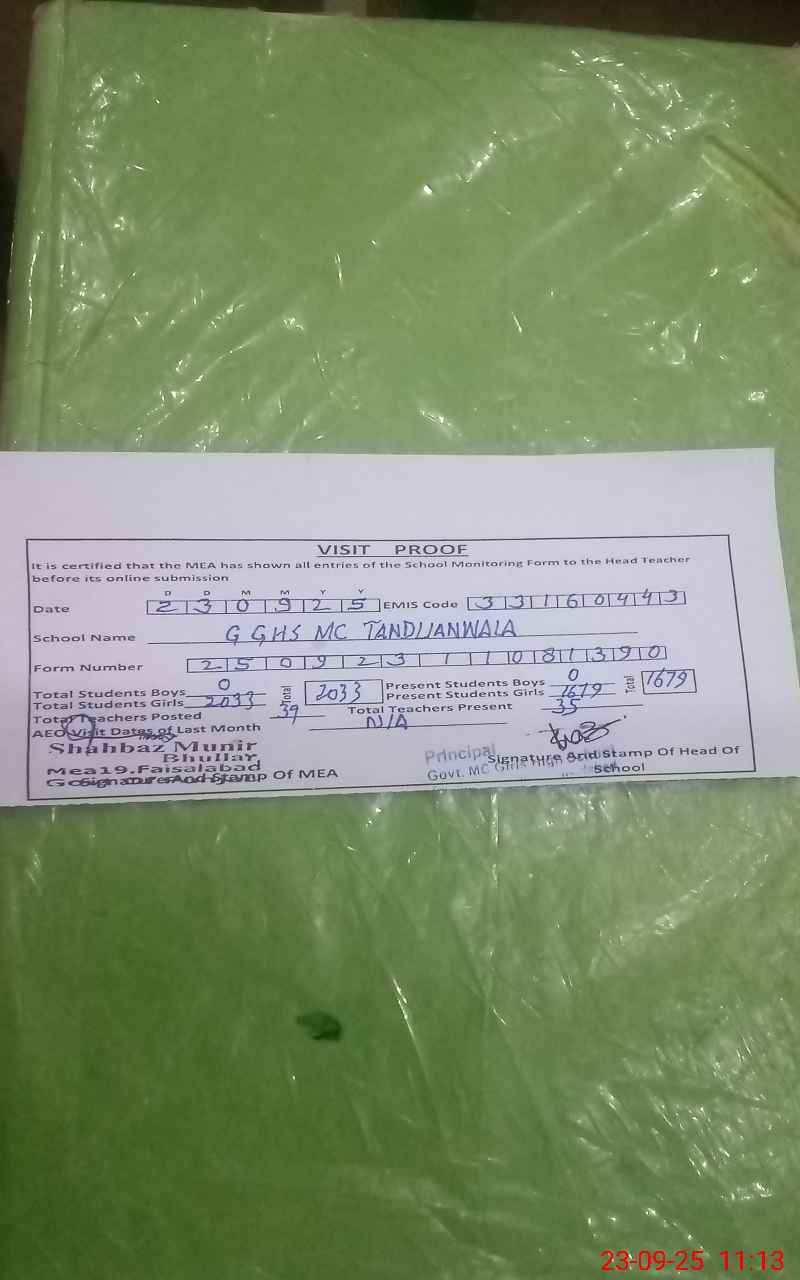 VISIT PROOF
It is certified that the MEA has shown all entries of the School Monitoring Form to the Head Teacher
before its online submission
D D M M Y Y
Date 2 3 0 9 2 5 EMIS Code 3 3 1 6 0 4 4 3
School Name G GHS MC TANDLIANWALA
Form Number 2 5 0 9 2 3 1 1 0 8 1 3 9 0
Total Students Boys 0 Total 2033 Present Students Boys 0 Total 1679
Total Students Girls 2033 Present Students Girls 1679
Total Teachers Posted 39 Total Teachers Present 35
AEO Visit Dates of Last Month N/A
Shahbaz Munir
Bhullar
Mea19.Faisalabad
Signature And Stamp Of MEA
Principal
Govt. MC Girls High School
Signature And Stamp Of Head Of
School
23-09-25 11:13